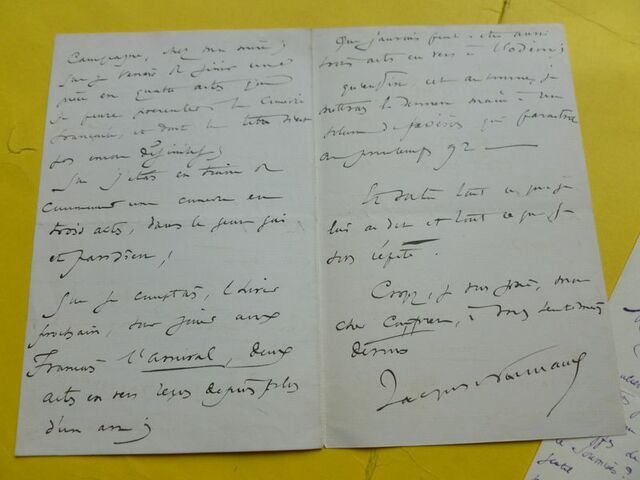 Campagne, chez ma mère;
Que je venais de finir une
pièce en quatre actes que
je pense présenter à la Comédie
française, et dont le titre n'est
pas encore définitif;
Que j'étais en train de
commencer une comédie en
trois actes, dans le genre gai
et parisien;
Que je comptais, l'hiver
prochain, être joué aux
Français l'amiral, deux
actes en vers reçus depuis plus
d'un an;
Que j'aurais peut-être aussi
trois actes en vers à l'odéon;
qu'enfin, cet automne, je
mettrai la dernière main à un
volume de poésies qui paraîtra
au printemps 92 —
Et voilà tout ce que je
lui ai dit et tout ce que je
vous répète.
Croyez, je vous prie, mon
cher Confrère, à mes sentiments
dévoués
Jacques Normand